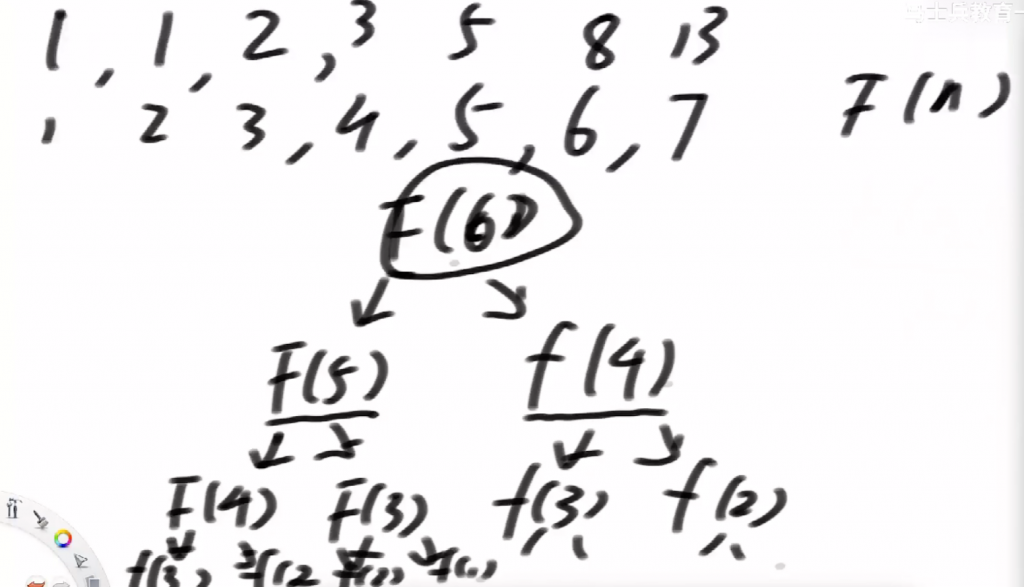 马士兵教育
1, 1, 2, 3 5 8 13
1 2 3, 4, 5, 6, 7 F(n)
F(6)
F(5) f(4)
F(4) F(3) f(3) f(2)
f(3) f(2